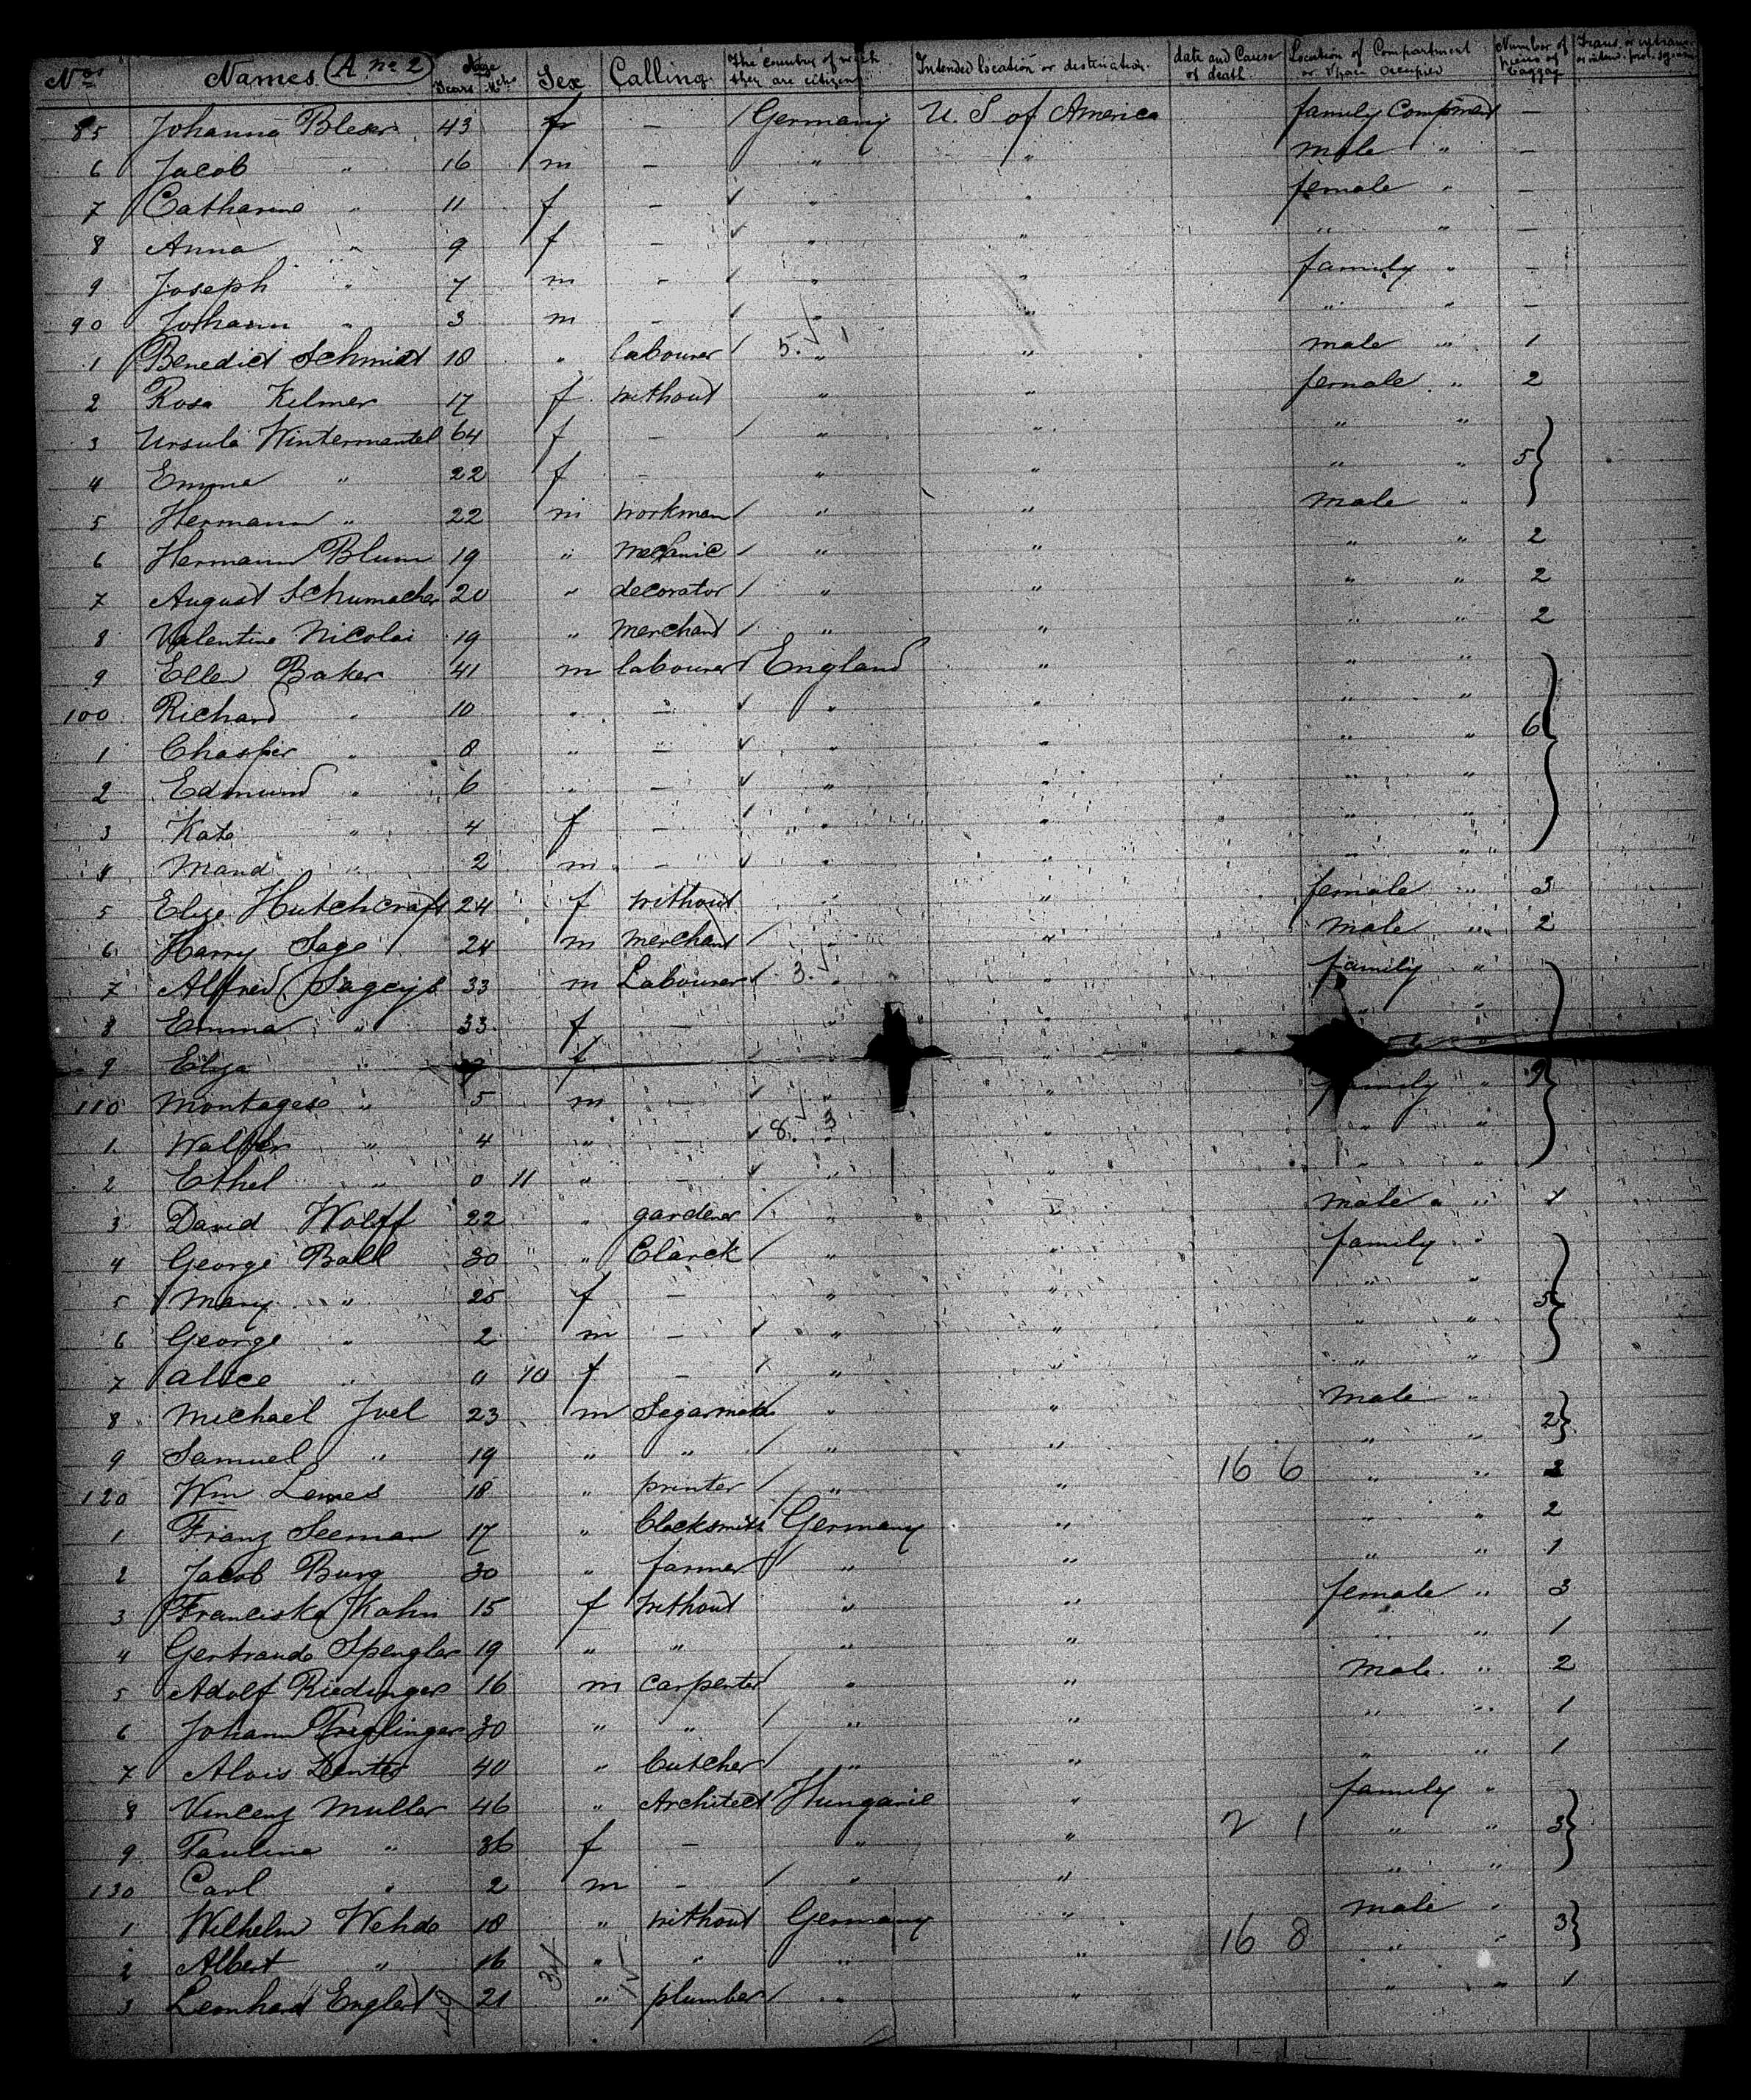 Nos Names (A no 2) Age Years Mths Sex Calling The country of which they are citizens Intended location or destination date and Cause of death Location of Compartment or Space occupied Number of pieces of Baggage
85 Johanna Bleser 43 f — Germany U. S of America family Compment —
6 Jacob " 16 m — " " male " —
7 Catharine " 11 f — " " female " —
8 Anna " 9 f — " " " " —
9 Joseph " 7 m - " " family " —
90 Johann " 3 m — " " " " —
1 Benedict Schmidt 18 " labourer 5. " " male " 1
2 Rosa Kilmer 17 f without " " female " 2
3 Ursula Wintermantel 64 f — " " " "
4 Emma " 22 f — " " " " 5
5 Hermann " 22 m workman " " male "
6 Hermann Blum 19 " mechanic " " " " 2
7 August Schumacher 20 " decorator " " " " 2
8 Valentine Nicolai 19 " merchand " " " " 2
9 Ellen Baker 41 m labourer England " " "
100 Richard " 10 " — " " " "
1 " 8 " — " " " " 6
2 Edmund " 6 " — " " " "
3 Kate " 4 f — " " " "
4 Maud " 2 m — " " " "
5 Elize Hutchcraft 24 f without " " female " 3
6 Harry Sage 24 m merchand " " male " 2
7 Alfred 33 m Labourer 3. " " family "
8 Emma " 33 f — " " "
9 Eliza " f " "
110 Montagese " 5 m — " " family " 9
1 Walther " 4 " — 8. 3 " " " "
2 Ethel " 0 11 " — " " " "
3 David Wolff 22 " gardener " " male " 1
4 George Ball 30 " Clarck " " family "
5 Mary " 25 f — " " " " 5
6 George " 2 m — " " " "
7 Alice " 0 10 f — " " " "
8 Michael Joel 23 m Segarmaker " " male " 2
9 Samuel " 19 " " " " " "
120 Wm 18 " printer " " 16 6 " " 2
1 Franz Seeman 17 " blacksmith Germany " " " 2
2 Jacob Burg 30 " farmer " " " " 1
3 Franciska Kahn 15 f without " " female " 3
4 Gertraude Spengler 19 " " " " " " 1
5 Adolf Riedinger 16 m carpenter " " male " 2
6 Johann 30 " " " " " " 1
7 Alois 40 " butcher " " " " 1
8 Vincenz Muller 46 " Architect Hungarie " family "
9 Pauline " 36 f — " " 2 1 " " 3
130 Carl " 2 m — " " " "
1 Wilhelm Wehde 18 " without Germany " male " 3
2 Albert " 16 " " " " 16 8 " "
3 Leonhard Englert 21 " plumber " " " " 1